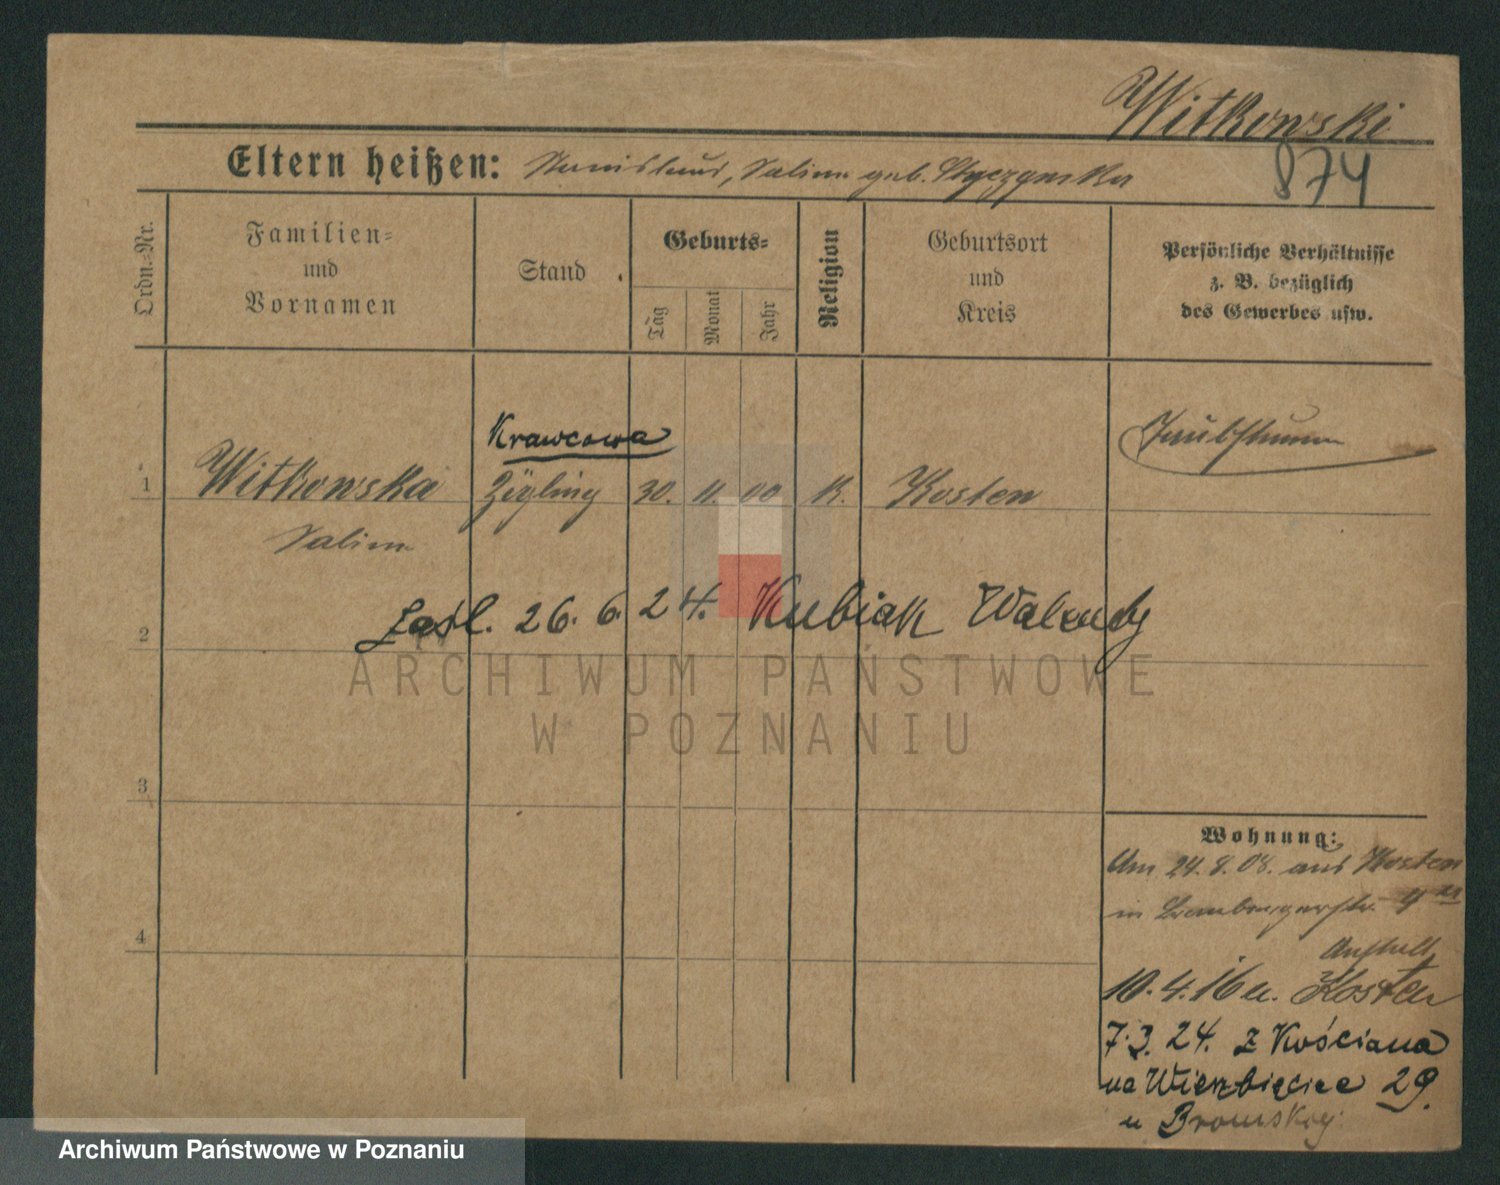 Witkowski
874
Eltern heißen: Stanislaus, Salina geb. Styczynska
Ordn.-Nr.
Familien-
und
Vornamen
Stand
Geburts-
Tag
Monat
Jahr
Religion
Geburtsort
und
Kreis
Persönliche Verhältnisse
z. B. bezüglich
des Gewerbes usw.
Krawcowa
Taubstumm
1 Witkowska Zögling 30. 11. 00 K. Kosten
Salina
2 zaśl. 26. 6. 24. Kubiak Walenty
ARCHIWUM PAŃSTWOWE
W POZNANIU
3
4
Wohnung:
Am 24. 8. 08. aus Kosten
in Brombergerstr.
Anstalt
10. 4. 16 n. Kosten
7. 3. 24. z Kościana
na Wierzbięcice 29.
u Bromskej
Archiwum Państwowe w Poznaniu